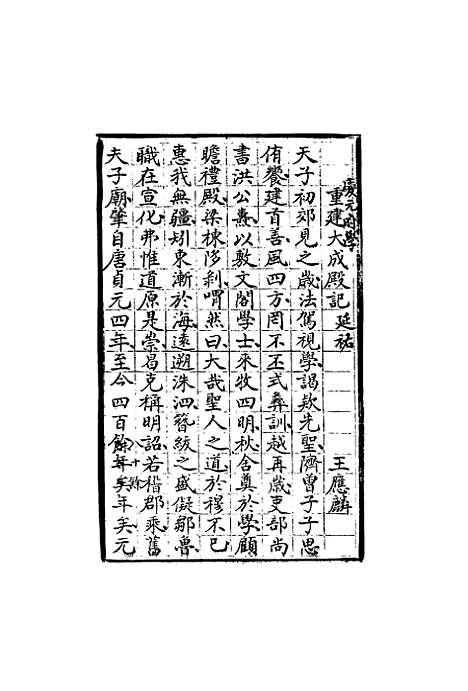 慶元府學
重建大成殿記延祐 王應麟
天子初郊見之歲法駕視學謁款先聖隮曾子子思
侑饗建首善風四方罔不丕式彝訓越再歲吏部尚
書洪公燾以敷文閣學士來牧四明秋舍奠於學顧
瞻禮殿梁棟陊剥喟然曰大哉聖人之道於穆不已
惠我無疆矧東漸於海遠遡洙泗簪紱之盛儗鄒魯
職在宣化弗惟道原是崇曷克稱明詔若稽郡乘舊
夫子廟肇自唐貞元四年至今四百餘年矣年矣元
十餘